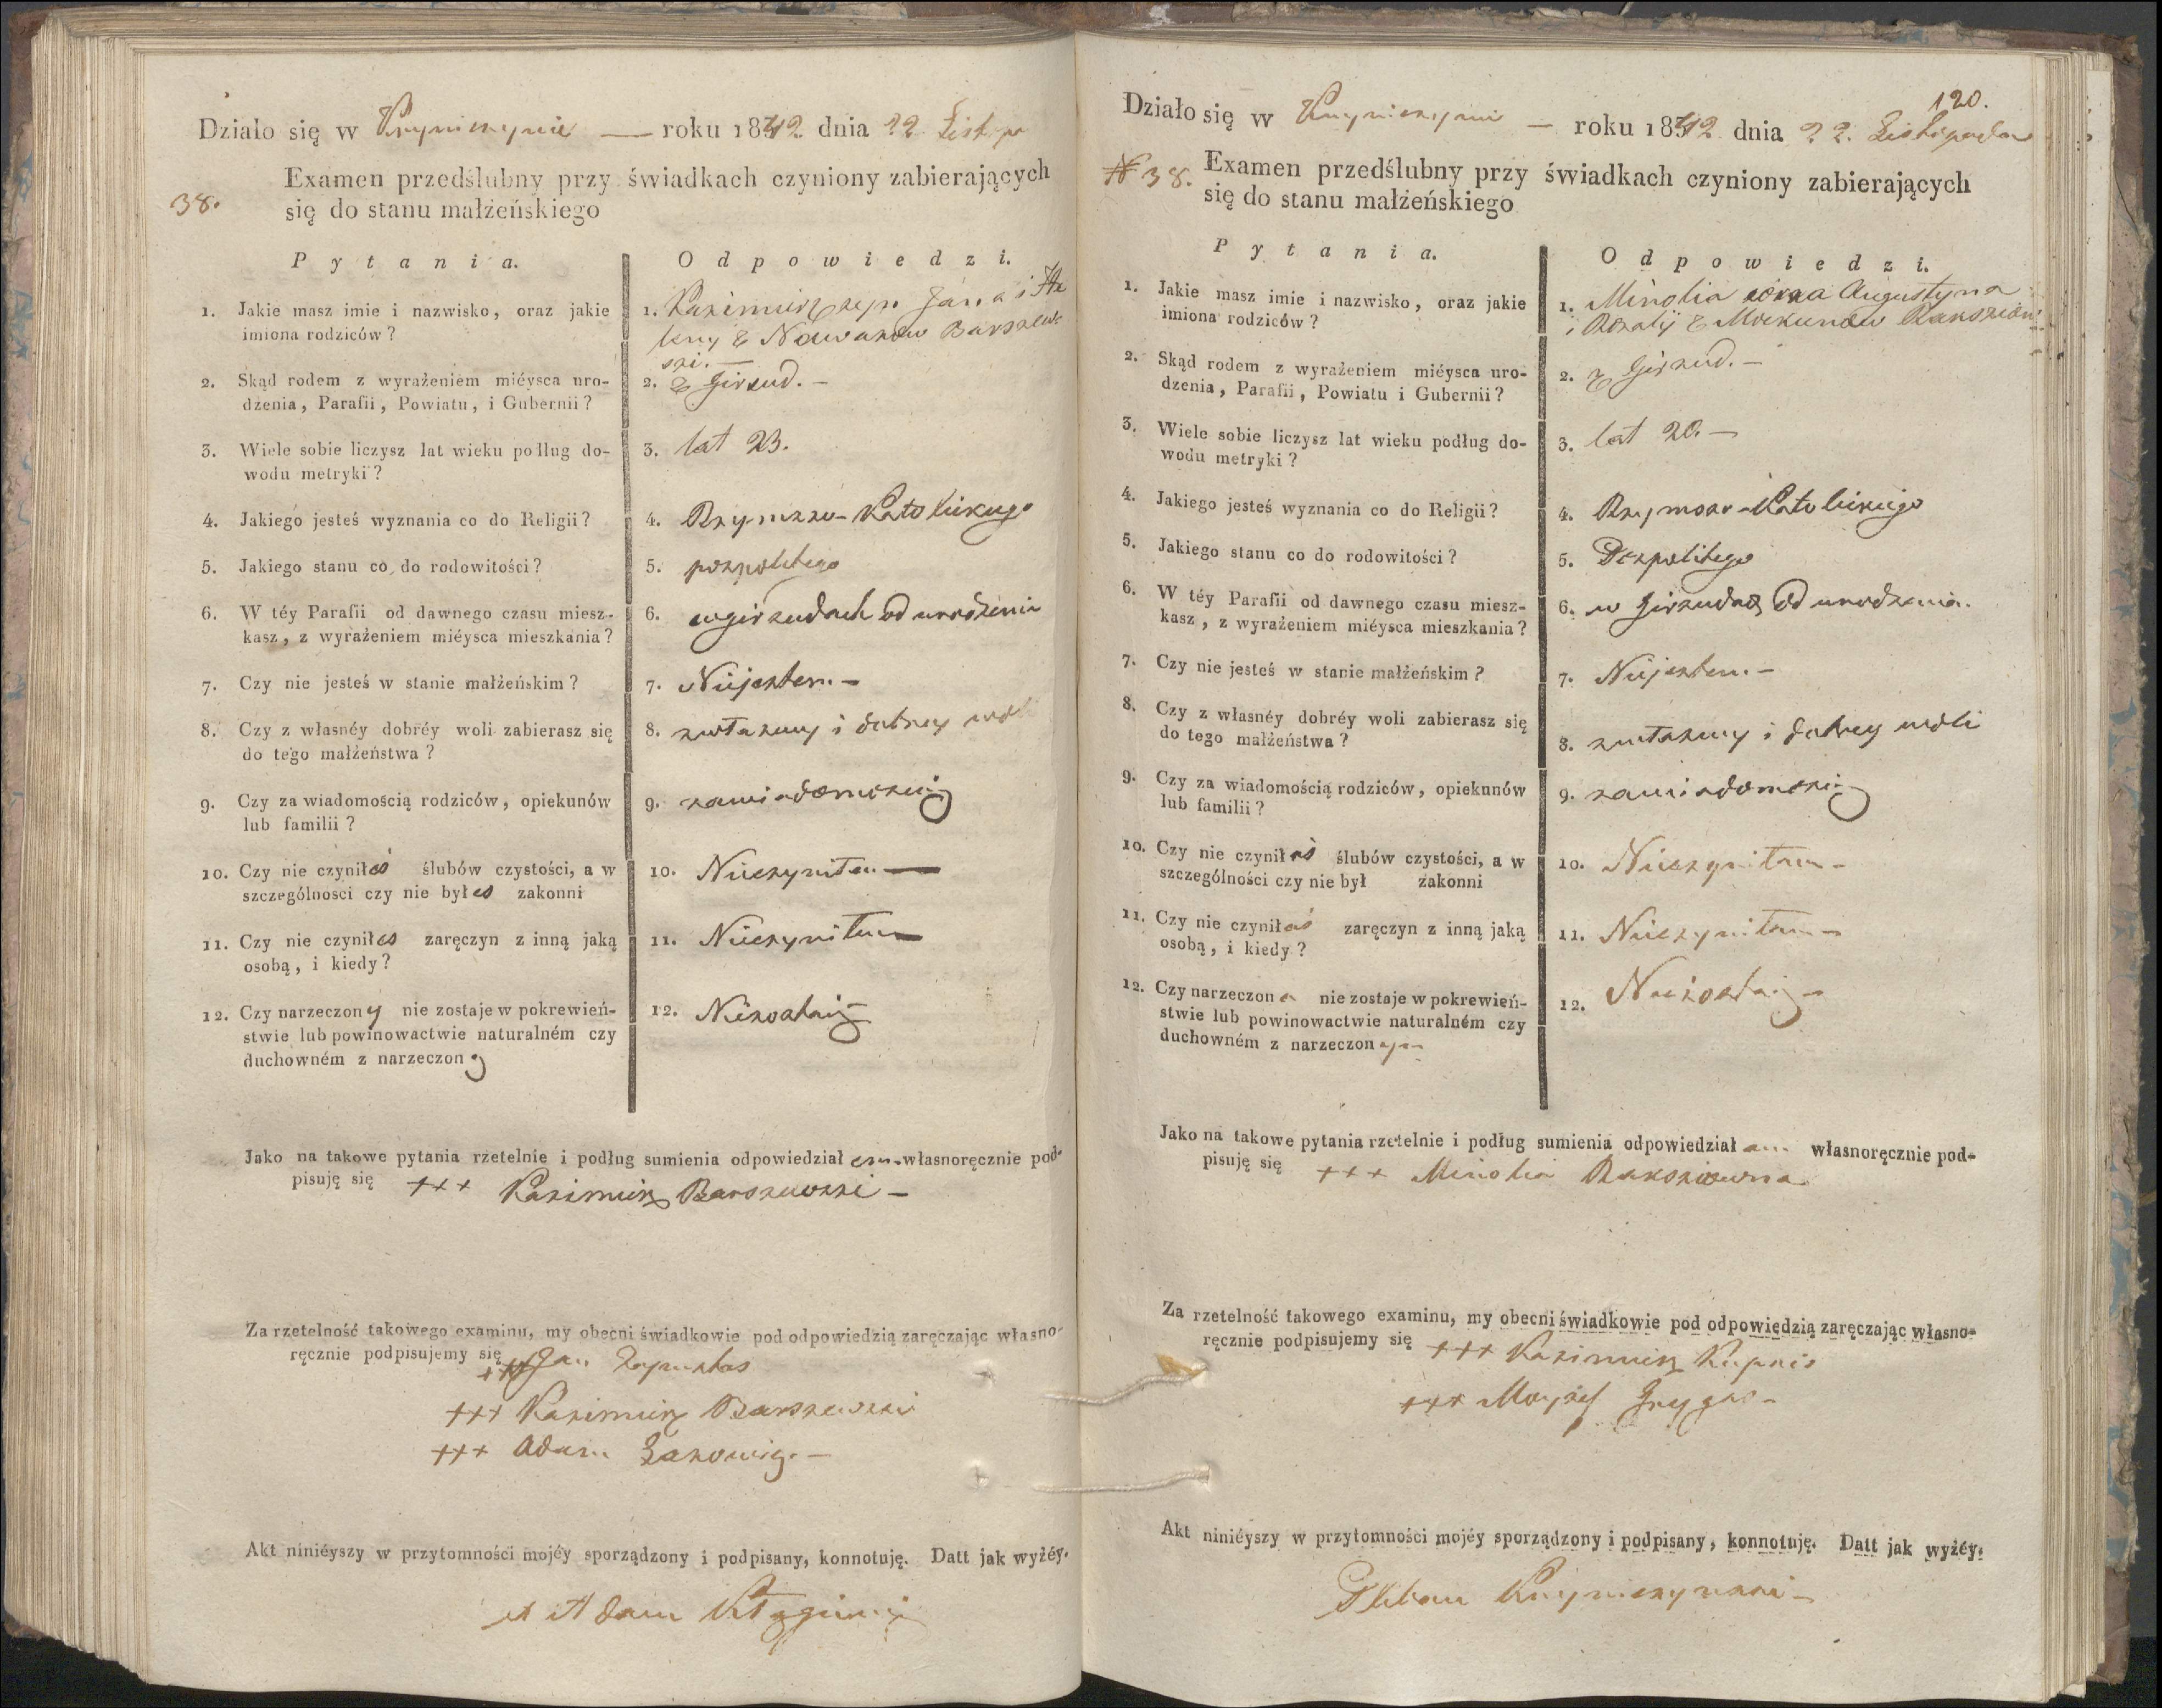 Działo się w Kryniczynie — roku 1842 dnia 22 Listop
38.
Examen przedślubny przy świadkach czyniony zabierających
się do stanu małżeńskiego
Pytania.
Odpowiedzi.
1. Jakie masz imie i nazwisko, oraz jakie
imiona rodziców?
1. Kazimierz syn Jana i He
leny z Nowaków Barszew
ski.—
2. Skąd rodem z wyrażeniem miéysca uro-
dzenia, Parafii, Powiatu, i Gubernii?
2. z Girżud.—
3. Wiele sobie liczysz lat wieku podług do-
wodu metryki?
3. lat 23.
4. Jakiego jesteś wyznania co do Religii?
4. Rzymsko-Katolickiego
5. Jakiego stanu co do rodowitości?
5. pospolitego
6. W téy Parafii od dawnego czasu miesz-
kasz, z wyrażeniem miéysca mieszkania?
6. w girżudach od urodzenia
7. Czy nie jesteś w stanie małżeńskim?
7. Niejestem.—
8. Czy z własnéy dobréy woli zabierasz się
do tego małżeństwa?
8. zwłasney i dobrey woli
9. Czy za wiadomością rodziców, opiekunów
lub familii?
9. zawiadomością
10. Czy nie czyniłeś ślubów czystości, a w
szczególnosci czy nie byłes zakonni
10. Nieczyniłem—
11. Czy nie czyniłes zaręczyn z inną jaką
osobą, i kiedy?
11. Nieczyniłem—
12. Czy narzeczony nie zostaje w pokrewień-
stwie lub powinowactwie naturalném czy
duchowném z narzeczoną
12. Niezostaię
Jako na takowe pytania rzetelnie i podług sumienia odpowiedziałem własnoręcznie pod-
pisuję się +++ Kazimierz Barszewski—
Za rzetelność takowego examinu, my obecni świadkowie pod odpowiedzią zaręczając własno-
ręcznie podpisujemy się +++ Jan
+++ Kazimierz Barszewski
+++ Adam
Akt niniéyszy w przytomności mojéy sporządzony i podpisany, konnotuję. Datt jak wyżéy.
X Adam
120.
Działo się w Kryniczynie — roku 1842 dnia 22. Listopada
N 38.
Examen przedślubny przy świadkach czyniony zabierających
się do stanu małżeńskiego
Pytania.
Odpowiedzi.
1. Jakie masz imie i nazwisko, oraz jakie
imiona rodziców?
1. córka Augustyna
i Rozalij z
2. Skąd rodem z wyrażeniem miéysca uro-
dzenia, Parafii, Powiatu i Gubernii?
2. z Girżud.—
3. Wiele sobie liczysz lat wieku podług do-
wodu metryki?
3. lat 20.—
4. Jakiego jesteś wyznania co do Religii?
4. Rzymsko-Katolickiego
5. Jakiego stanu co do rodowitości?
5. Pospolitego
6. W téy Parafii od dawnego czasu miesz-
kasz, z wyrażeniem miéysca mieszkania?
6. w Girżudach od urodzenia.
7. Czy nie jesteś w stanie małżeńskim?
7. Niejestem.—
8. Czy z własnéy dobréy woli zabierasz się
do tego małżeństwa?
8. zwłasney i dobrey woli
9. Czy za wiadomością rodziców, opiekunów
lub familii?
9. zawiadomością
10. Czy nie czyniłaś ślubów czystości, a w
szczególności czy nie był zakonni
10. Nieczyniłam—
11. Czy nie czyniłaś zaręczyn z inną jaką
osobą, i kiedy?
11. Nieczyniłam—
12. Czy narzeczona nie zostaje w pokrewień-
stwie lub powinowactwie naturalném czy
duchowném z narzeczonym
12. Niezostaię—
Jako na takowe pytania rzetelnie i podług sumienia odpowiedziałam własnoręcznie pod-
pisuję się +++
Za rzetelność takowego examinu, my obecni świadkowie pod odpowiedzią zaręczając własno-
ręcznie podpisujemy się +++ Kazimierz
+++
Akt niniéyszy w przytomności mojéy sporządzony i podpisany, konnotuję. Datt jak wyżéy.
Pleban